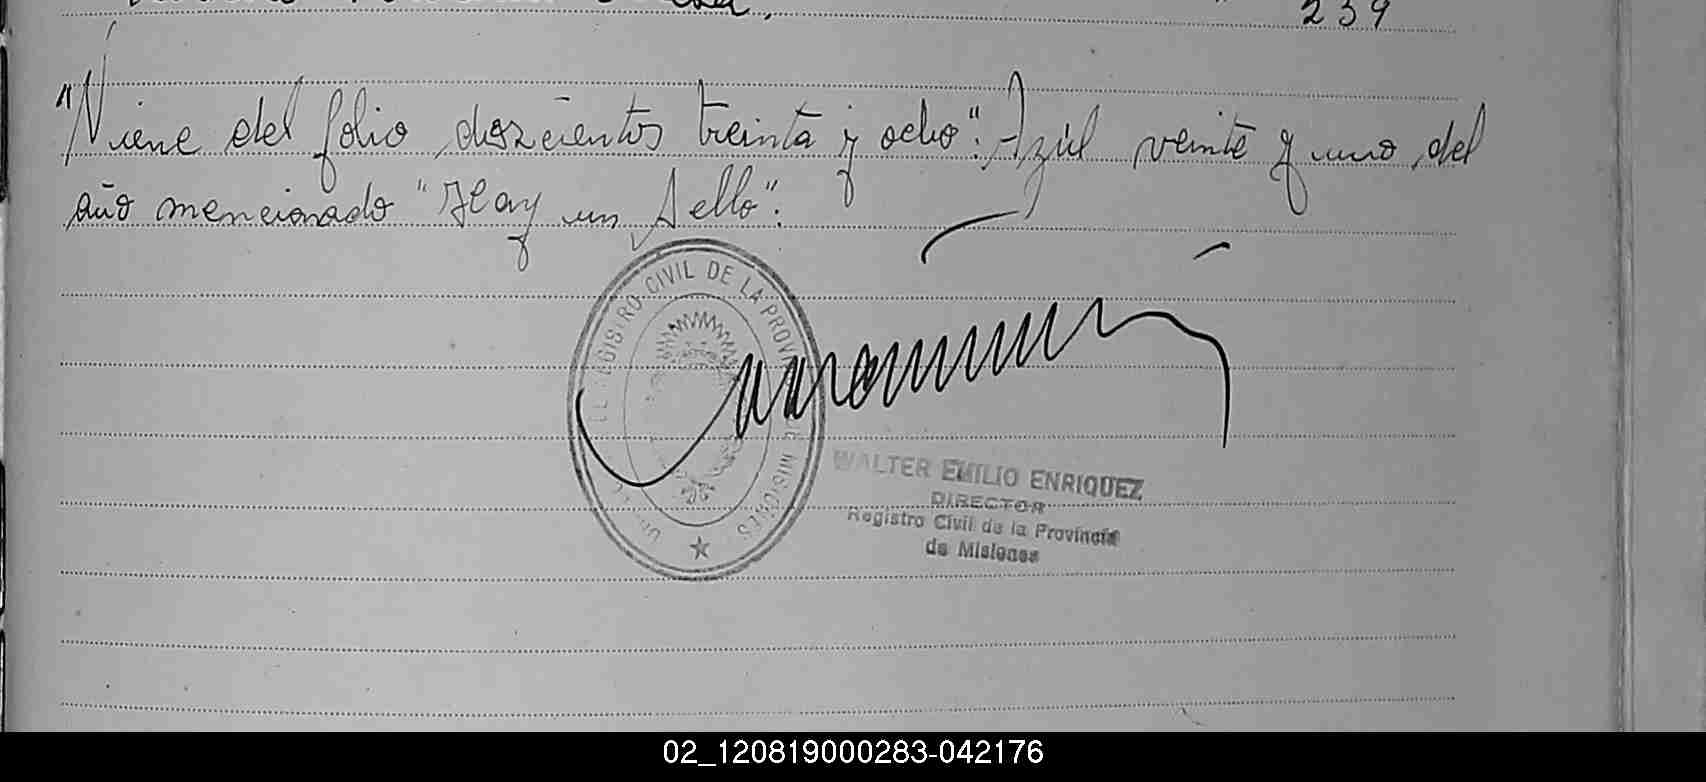 239
"Viene del folio doszcientos treinta y ocho". Azúl veinte y uno del
año mencionado "Hay un sello".
REGISTRO CIVIL DE LA PROVINCIA DE MISIONES
WALTER EMILIO ENRIQUEZ
DIRECTOR
Registro Civil de la Provincia
de Misiones
02_120819000283-042176